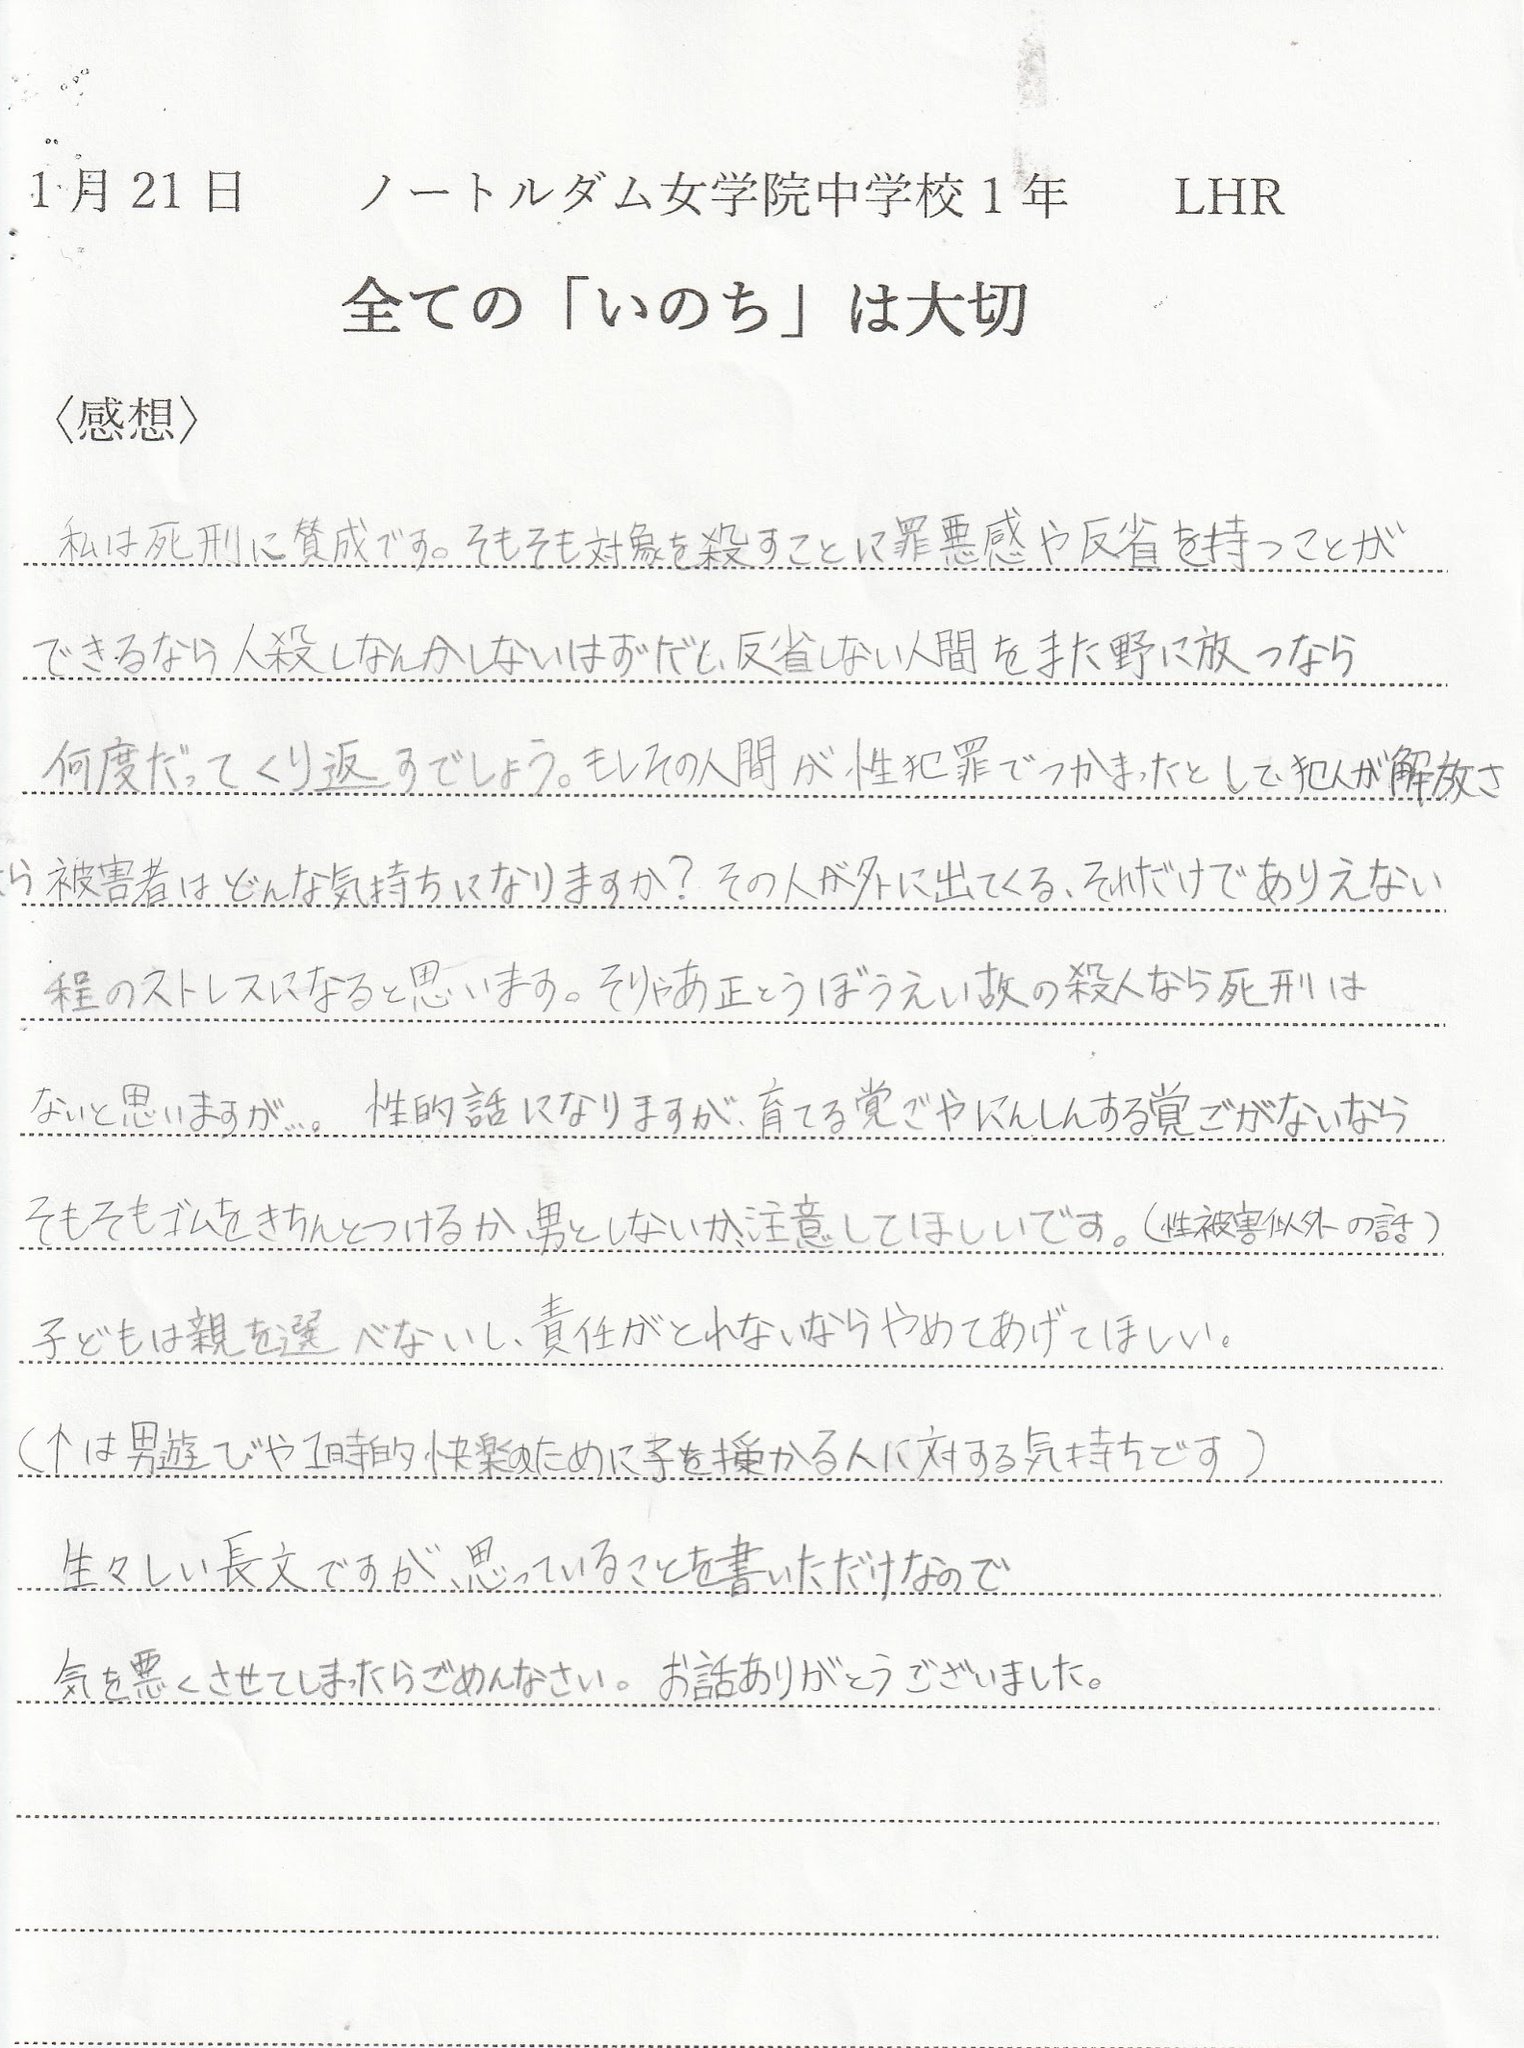 1月21日 ノートルダム女学院中学校1年 LHR
全ての「いのち」は大切
〈感想〉
私は死刑に賛成です。そもそも対象を殺すことに罪悪感や反省を持つことが
できるなら人殺しなんかしないはずだし、反省しない人間をまた野に放つなら
何度だってくり返すでしょう。もしその人間が性犯罪でつかまったとして犯人が解放さ
ら被害者はどんな気持ちになりますか？その人が外に出てくる、それだけでありえない
程のストレスになると思います。そりゃあ正とうぼうえい故の殺人なら死刑は
ないと思いますが…。 性的話になりますが、育てる覚ごやにんしんする覚ごがないなら
そもそもゴムをきちんとつけるか、男としないか、注意してほしいです。（性被害以外の話）
子どもは親を選べないし、責任がとれないならやめてあげてほしい。
（↑は男遊びや1時的快楽のために子を授かる人に対する気持ちです）
生々しい長文ですが、思っていることを書いただけなので
気を悪くさせてしまったらごめんなさい。お話ありがとうございました。